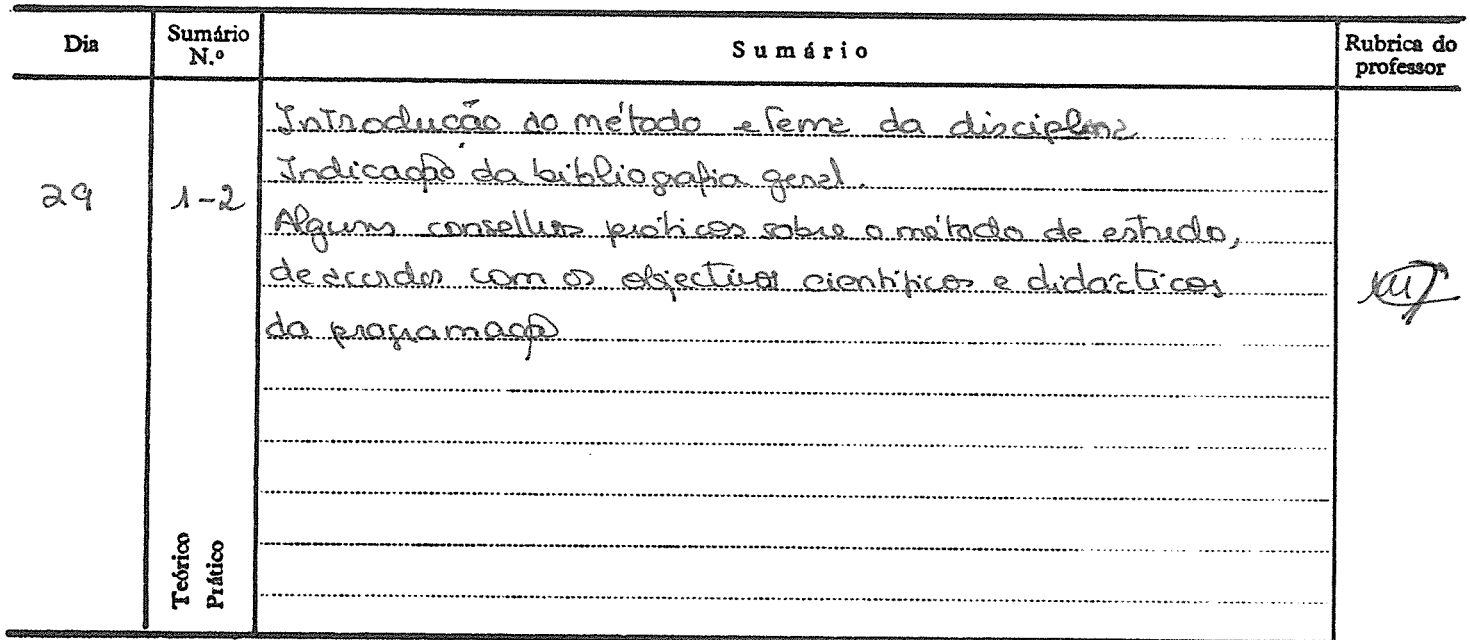 Dia Sumário N.º Sumário Rubrica do professor
Introdução ao método e tema da disciplina
Indicação da bibliografia geral.
29 1-2
Alguns conselhos práticos sobre o método de estudo,
de acordo com os objectivos científicos e didácticos
da programação
Teórico
Prático